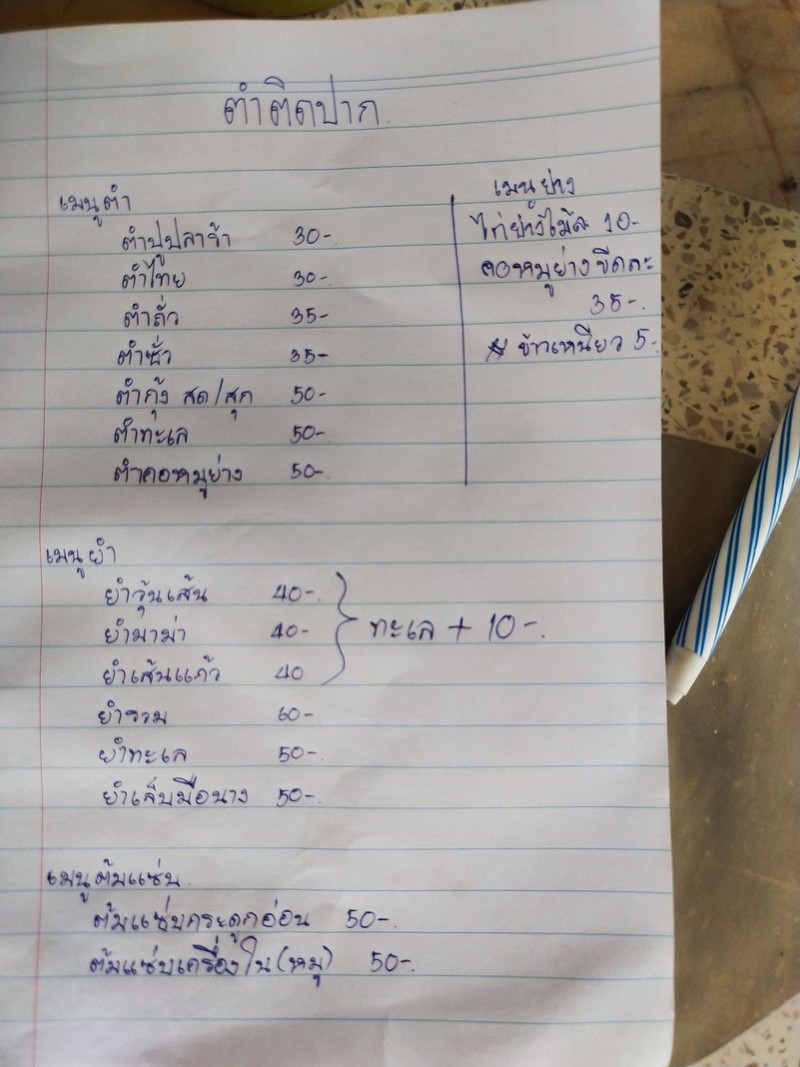 ตำติดปาก
เมนูตำ
ตำปูปลาร้า 30-
ตำไทย 30-
ตำถั่ว 35-
ตำซั่ว 35-
ตำกุ้ง สด/สุก 50-
ตำทะเล 50-
ตำคอหมูย่าง 50-
เมนูย่าง
ไก่ย่างไม้ละ 10-
คอหมูย่าง ขีดละ
35-
* ข้าวเหนียว 5-
เมนูยำ
ยำวุ้นเส้น 40-
ยำมาม่า 40-
ยำเส้นแก้ว 40
ทะเล + 10-
ยำรวม 60-
ยำทะเล 50-
ยำเล็บมือนาง 50-
เมนูต้มแซ่บ
ต้มแซ่บกระดูกอ่อน 50-
ต้มแซ่บเครื่องใน (หมู) 50-